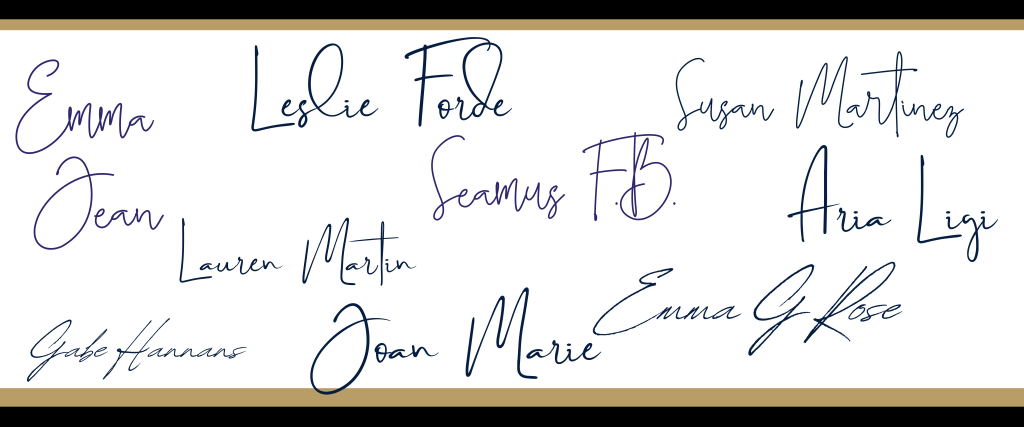 Emma
Jean
Leslie Forde
Susan Martinez
Seamus F.B.
Aria Ligi
Lauren Martin
Emma G Rose
Gabe Hannans
Joan Marie